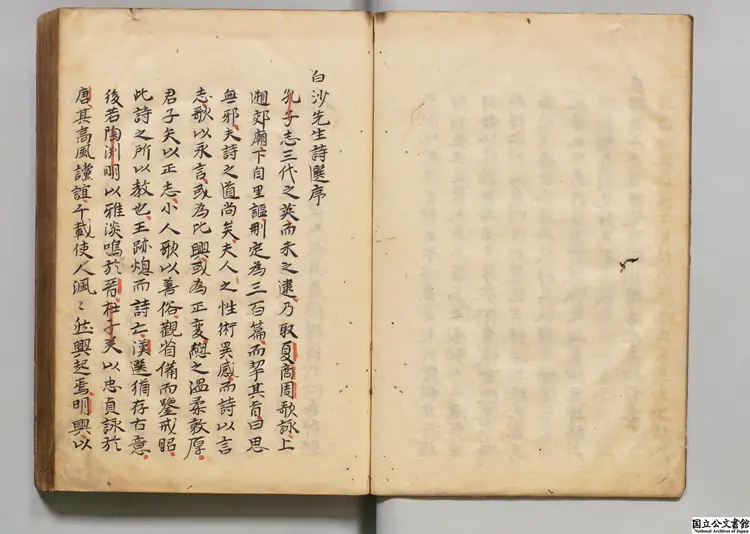 白沙先生詩選序
孔子志三代之英而未之逮乃取夏商周歌詠上
遡郊廟下自里謳刪定為三百篇而挈其旨曰思
無邪夫詩之道尚矣夫人之性術異感而詩以言
志歌以永言或為比興或為正變總之温柔敦厚
君子矢以正志小人歌以善俗觀省備而鑒戒昭
此詩之所以教也王跡熄而詩亡漢選猶存古意
後若陶渊明以雅淡鳴於晉杜子美以忠貞詠於
唐其高風讜誼千載使人渢〻然興起焉明興以
国立公文書館
National Archives of Japan